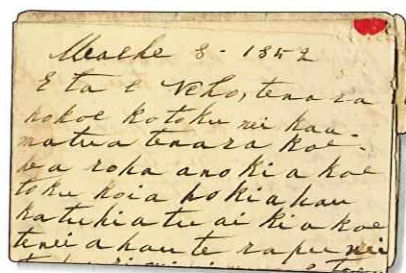 Maehe 8 - 1852
E ta e Neho, tena ra
kokoe ko toku nei kau-
matua tenara koe.
ka roha ano ki a koe
toku hoia ho ki ahau
ka tuhia tu ai ki a koe
tenei ahau te rapu nei